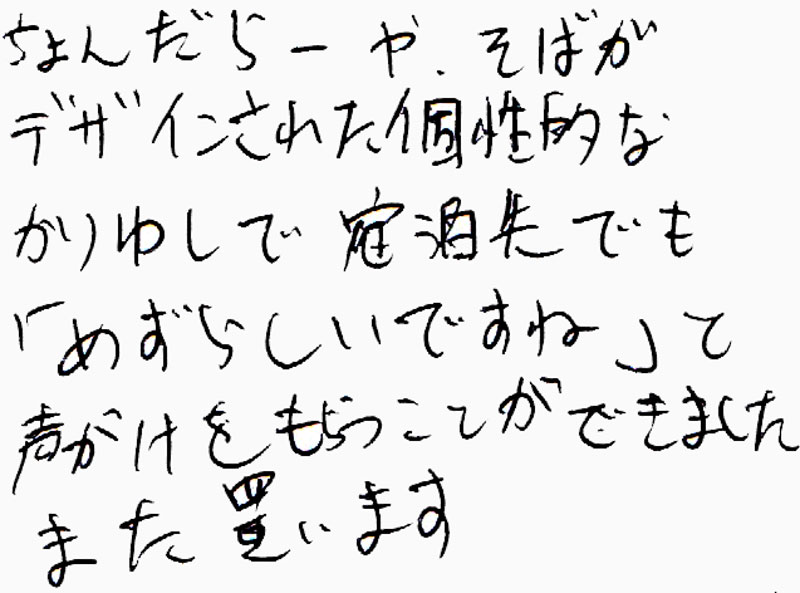 ちょんだらーや、そばが
デザインされた個性的な
かりゆしで宿泊先でも
「めずらしいですね」と
声がけをもらうことができました
また買います